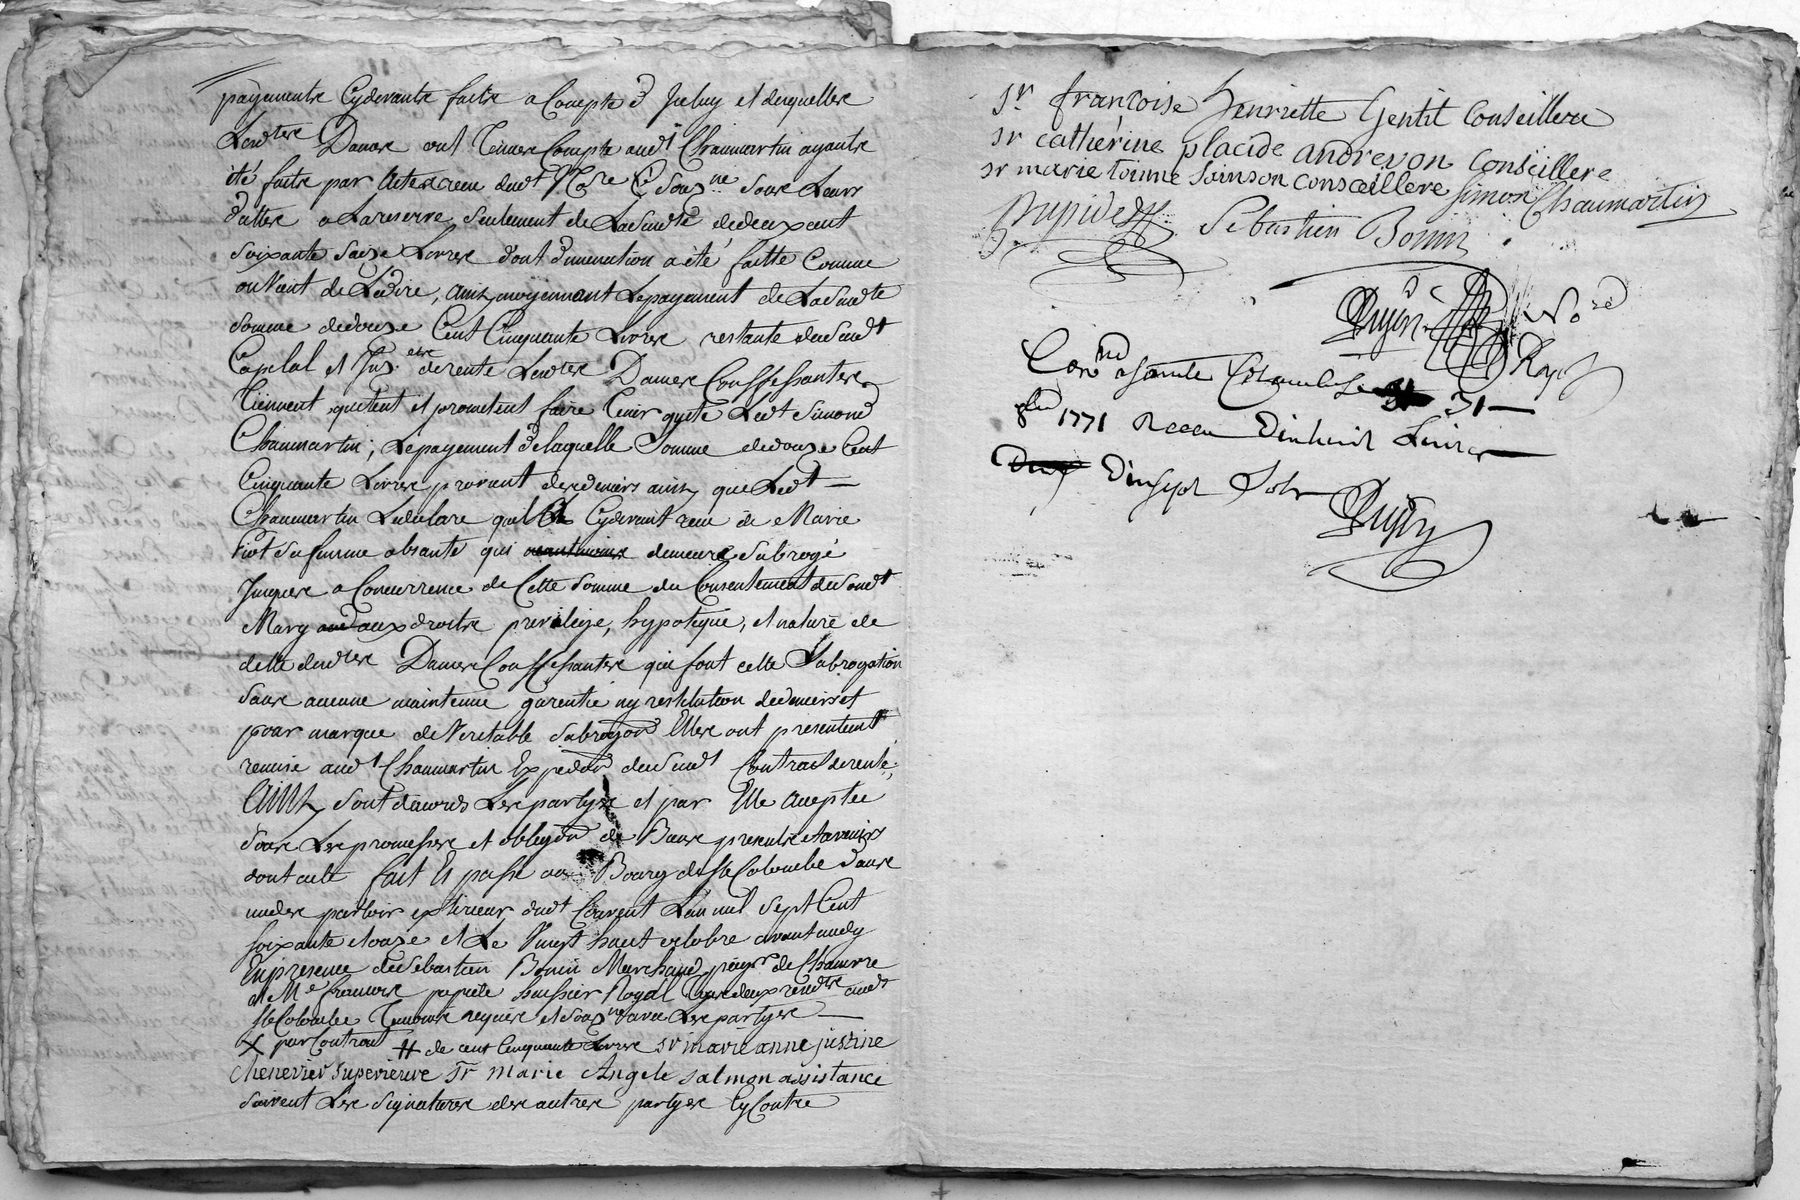 payements Cydevants faits a Compte d'Iceluy et desquelles
Lesdtes Dames ont Tenues Compte audt Chaumartin ayants
été faits par Actes receus dudt Nore Soussne sous Leurs
dattes a La reserve seulement de Lasusdte de deux cent
soixante Seize Livres dont dimenution a été faitte Comme
on Vient de Le dire, ainsy moyennant Le payement de La susdte
somme de douze Cent Cinquante Livres restante dususdt
Capital et de rente Lesdtes Dames Confessantes
Tiennent quitent et prometent faire Tenir quite Ledt Simond
Chaumartin; Le payement de laquelle Somme de douze Cent
Cinquante Livres provient des deniers ainsy que Ledt
Chaumartin Le declare quil a Cydevant receu de Marie
Piot sa femme absante qui demeure Subrogé
Jusques a Concurrence de Cette Somme du Consentement dususdt
Mary aux droits privilege, hypoteque, et nature de
dette desdtes Dames Confessantes qui font cette Subrogation
sans aucune maintenue garentie ny restitution de deniers et
pour marque de Veritable Subrogaon Elles ont presentemt
remise audt Chaumartin Expedon dususdt Contrat de rente,
Ainsy sont d'acords Les partyes et par Elle aceptee
sous Les promesses et obligaon de Biens presents et avenirs
dont acte fait Et passé au Bourg de Ste Colombe dans
un des parloir exterieur dudt Couvent L'an mil Sept Cent
soixante et onze et Le Vingt huit octobre avant midy
En presence de Sebastien Bonin Marchand de
et Me François papiete huissier Royal Les deux residts audt
Ste Colombe Temoins requis et Soussnés avec Les partyes
X par Contract # de cent Cinquante Livres Sr marie anne justine
chenevier Superieure Sr marie Angele salmon assistance
suivent Les signatures des autres partyes Cy Contre
Sr françoise henriette Gentil Conseillere
sr catherine placide andrevon conseillere
sr marie toinne Soinson conseillere Simon Chaumartin
Sebastien Bonin
Nore
Royal
Con a sainte Colombe Le 31
8bre 1771 Receu Dixhuit Livres
Dixsept Sols